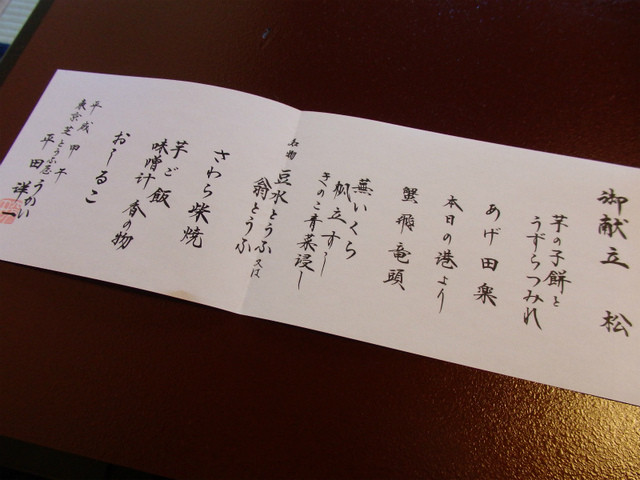 御献立 松
芋の子餅と
うずらつみれ
あげ田楽
本日の港より
蟹飛竜頭
蕪いくら
帆立すし
きのこ青菜浸し
名物 豆水とうふ又は
翁とうふ
さわら柴焼
芋ご飯
味噌汁 香の物
おしるこ
平成甲午
東京芝とうふ屋うかい
平田 洋一